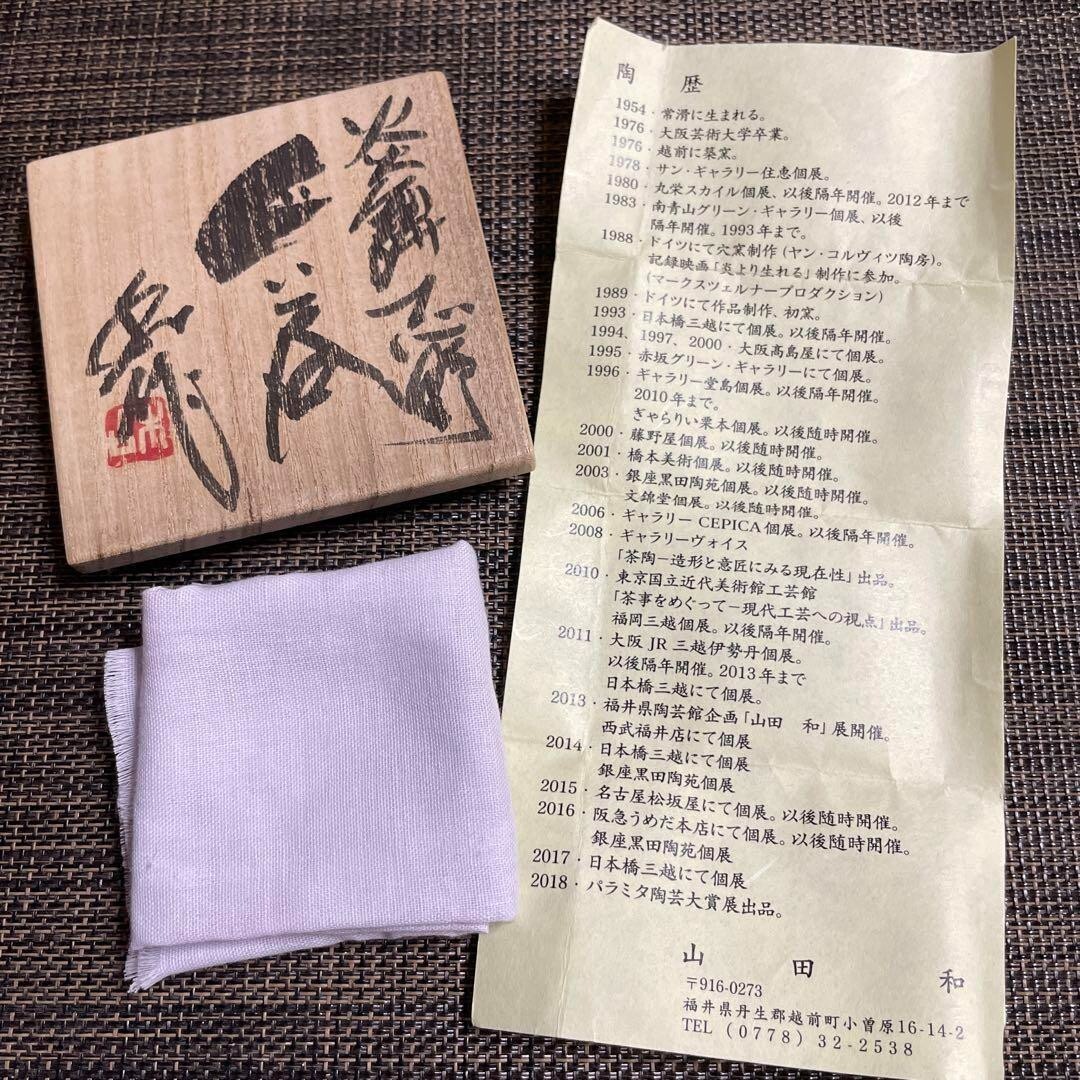 陶 歴
1954・常滑に生まれる。
1976・大阪芸術大学卒業。
1976・越前に築窯。
1978・サン・ギャラリー住恵個展。
1980・丸栄スカイル個展、以後隔年開催。2012年まで
1983・南青山グリーン・ギャラリー個展、以後
隔年開催。1993年まで。
1988・ドイツにて穴窯制作(ヤン・コルヴィツ陶房)。
記録映画「炎より生れる」制作に参加。
(マークスツェルナープロダクション)
1989・ドイツにて作品制作、初窯。
1993・日本橋三越にて個展。以後隔年開催。
1994、1997、2000・大阪高島屋にて個展。
1995・赤坂グリーン・ギャラリーにて個展。
1996・ギャラリー堂島個展。以後隔年開催。
2010年まで。
ぎゃらりい栗本個展。以後随時開催。
2000・藤野屋個展。以後随時開催。
2001・橋本美術個展。以後随時開催。
2003・銀座黒田陶苑個展。以後随時開催。
文錦堂個展。以後随時開催。
2006・ギャラリー CEPICA個展。以後隔年開催。
2008・ギャラリーヴォイス
「茶陶－造形と意匠にみる現在性」出品。
2010・東京国立近代美術館工芸館
「茶事をめぐって－現代工芸への視点」出品。
福岡三越個展。以後隔年開催。
2011・大阪 JR 三越伊勢丹個展。
以後隔年開催。2013年まで
日本橋三越にて個展。
2013・福井県陶芸館企画「山田 和」展開催。
西武福井店にて個展
2014・日本橋三越にて個展
銀座黒田陶苑個展
2015・名古屋松坂屋にて個展。以後随時開催。
2016・阪急うめだ本店にて個展。以後随時開催。
銀座黒田陶苑個展
2017・日本橋三越にて個展
2018・パラミタ陶芸大賞展出品。
山 田 和
〒916-0273
福井県丹生郡越前町小曽原16-14-2
TEL (0778) 32-2538